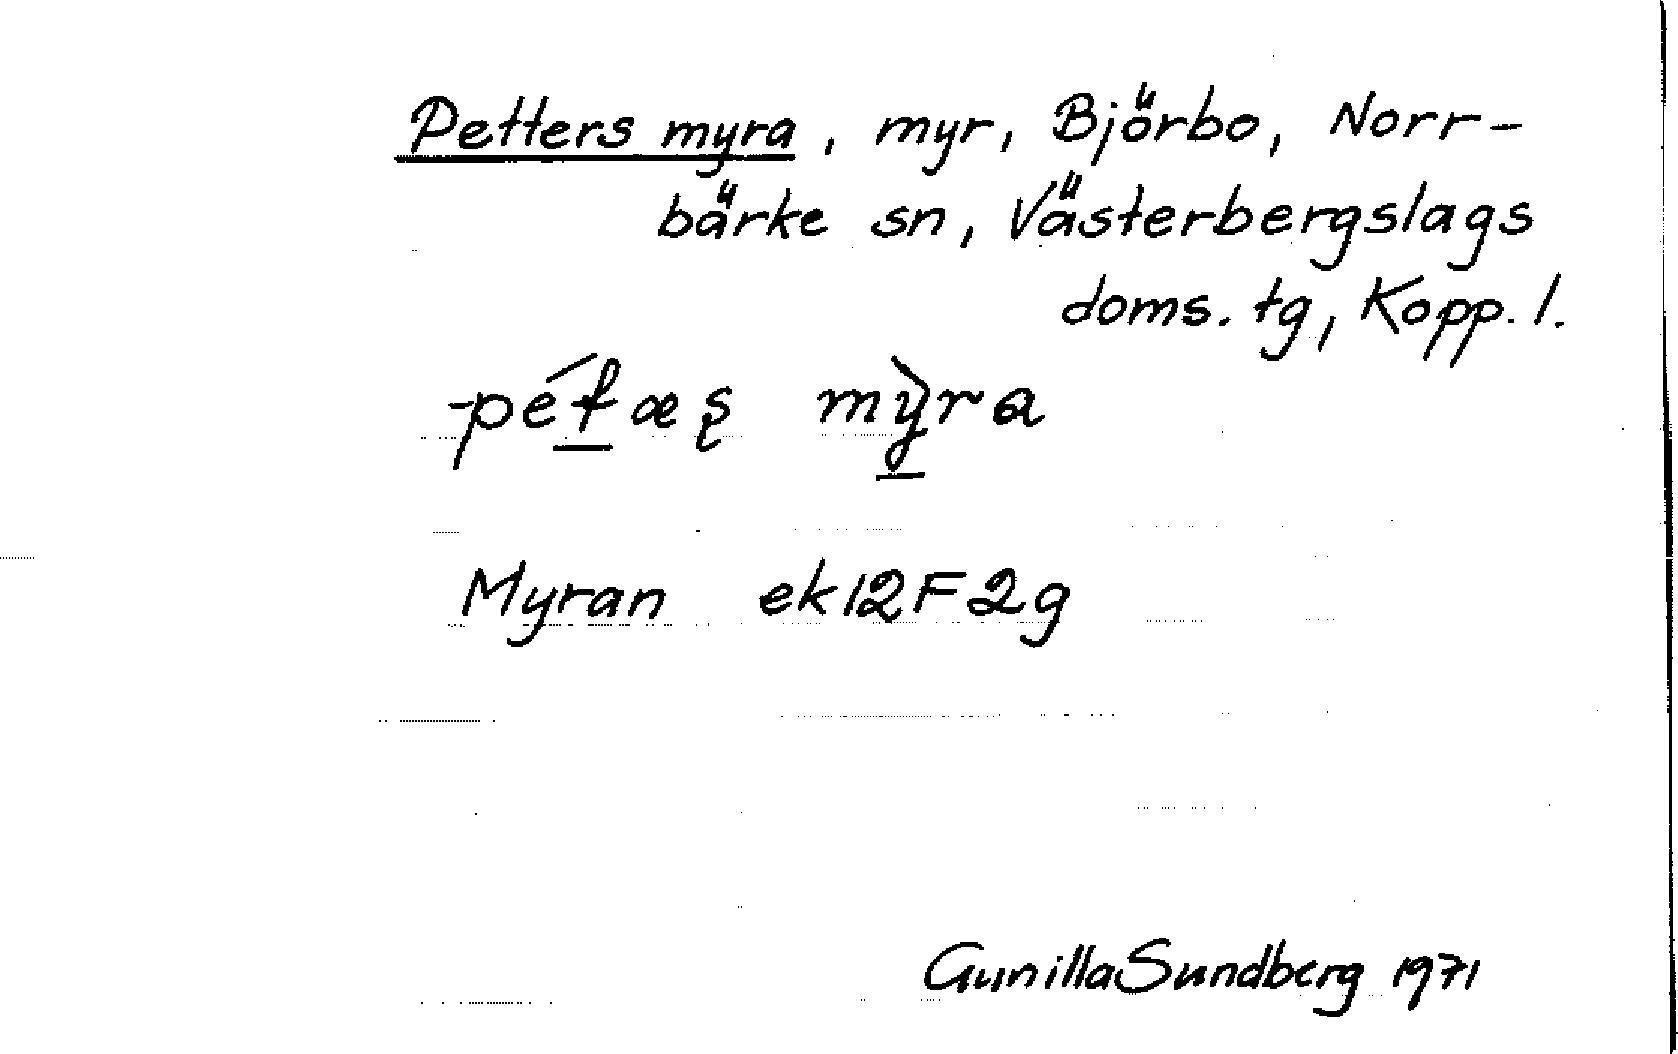 Petters myra, myr, Björbo, Norr-
bärke sn, Västerbergslags
doms. tg, Kopp. l.
pétæʂ mỳra
Myran ek 12F2g
Gunilla Sundberg 1971